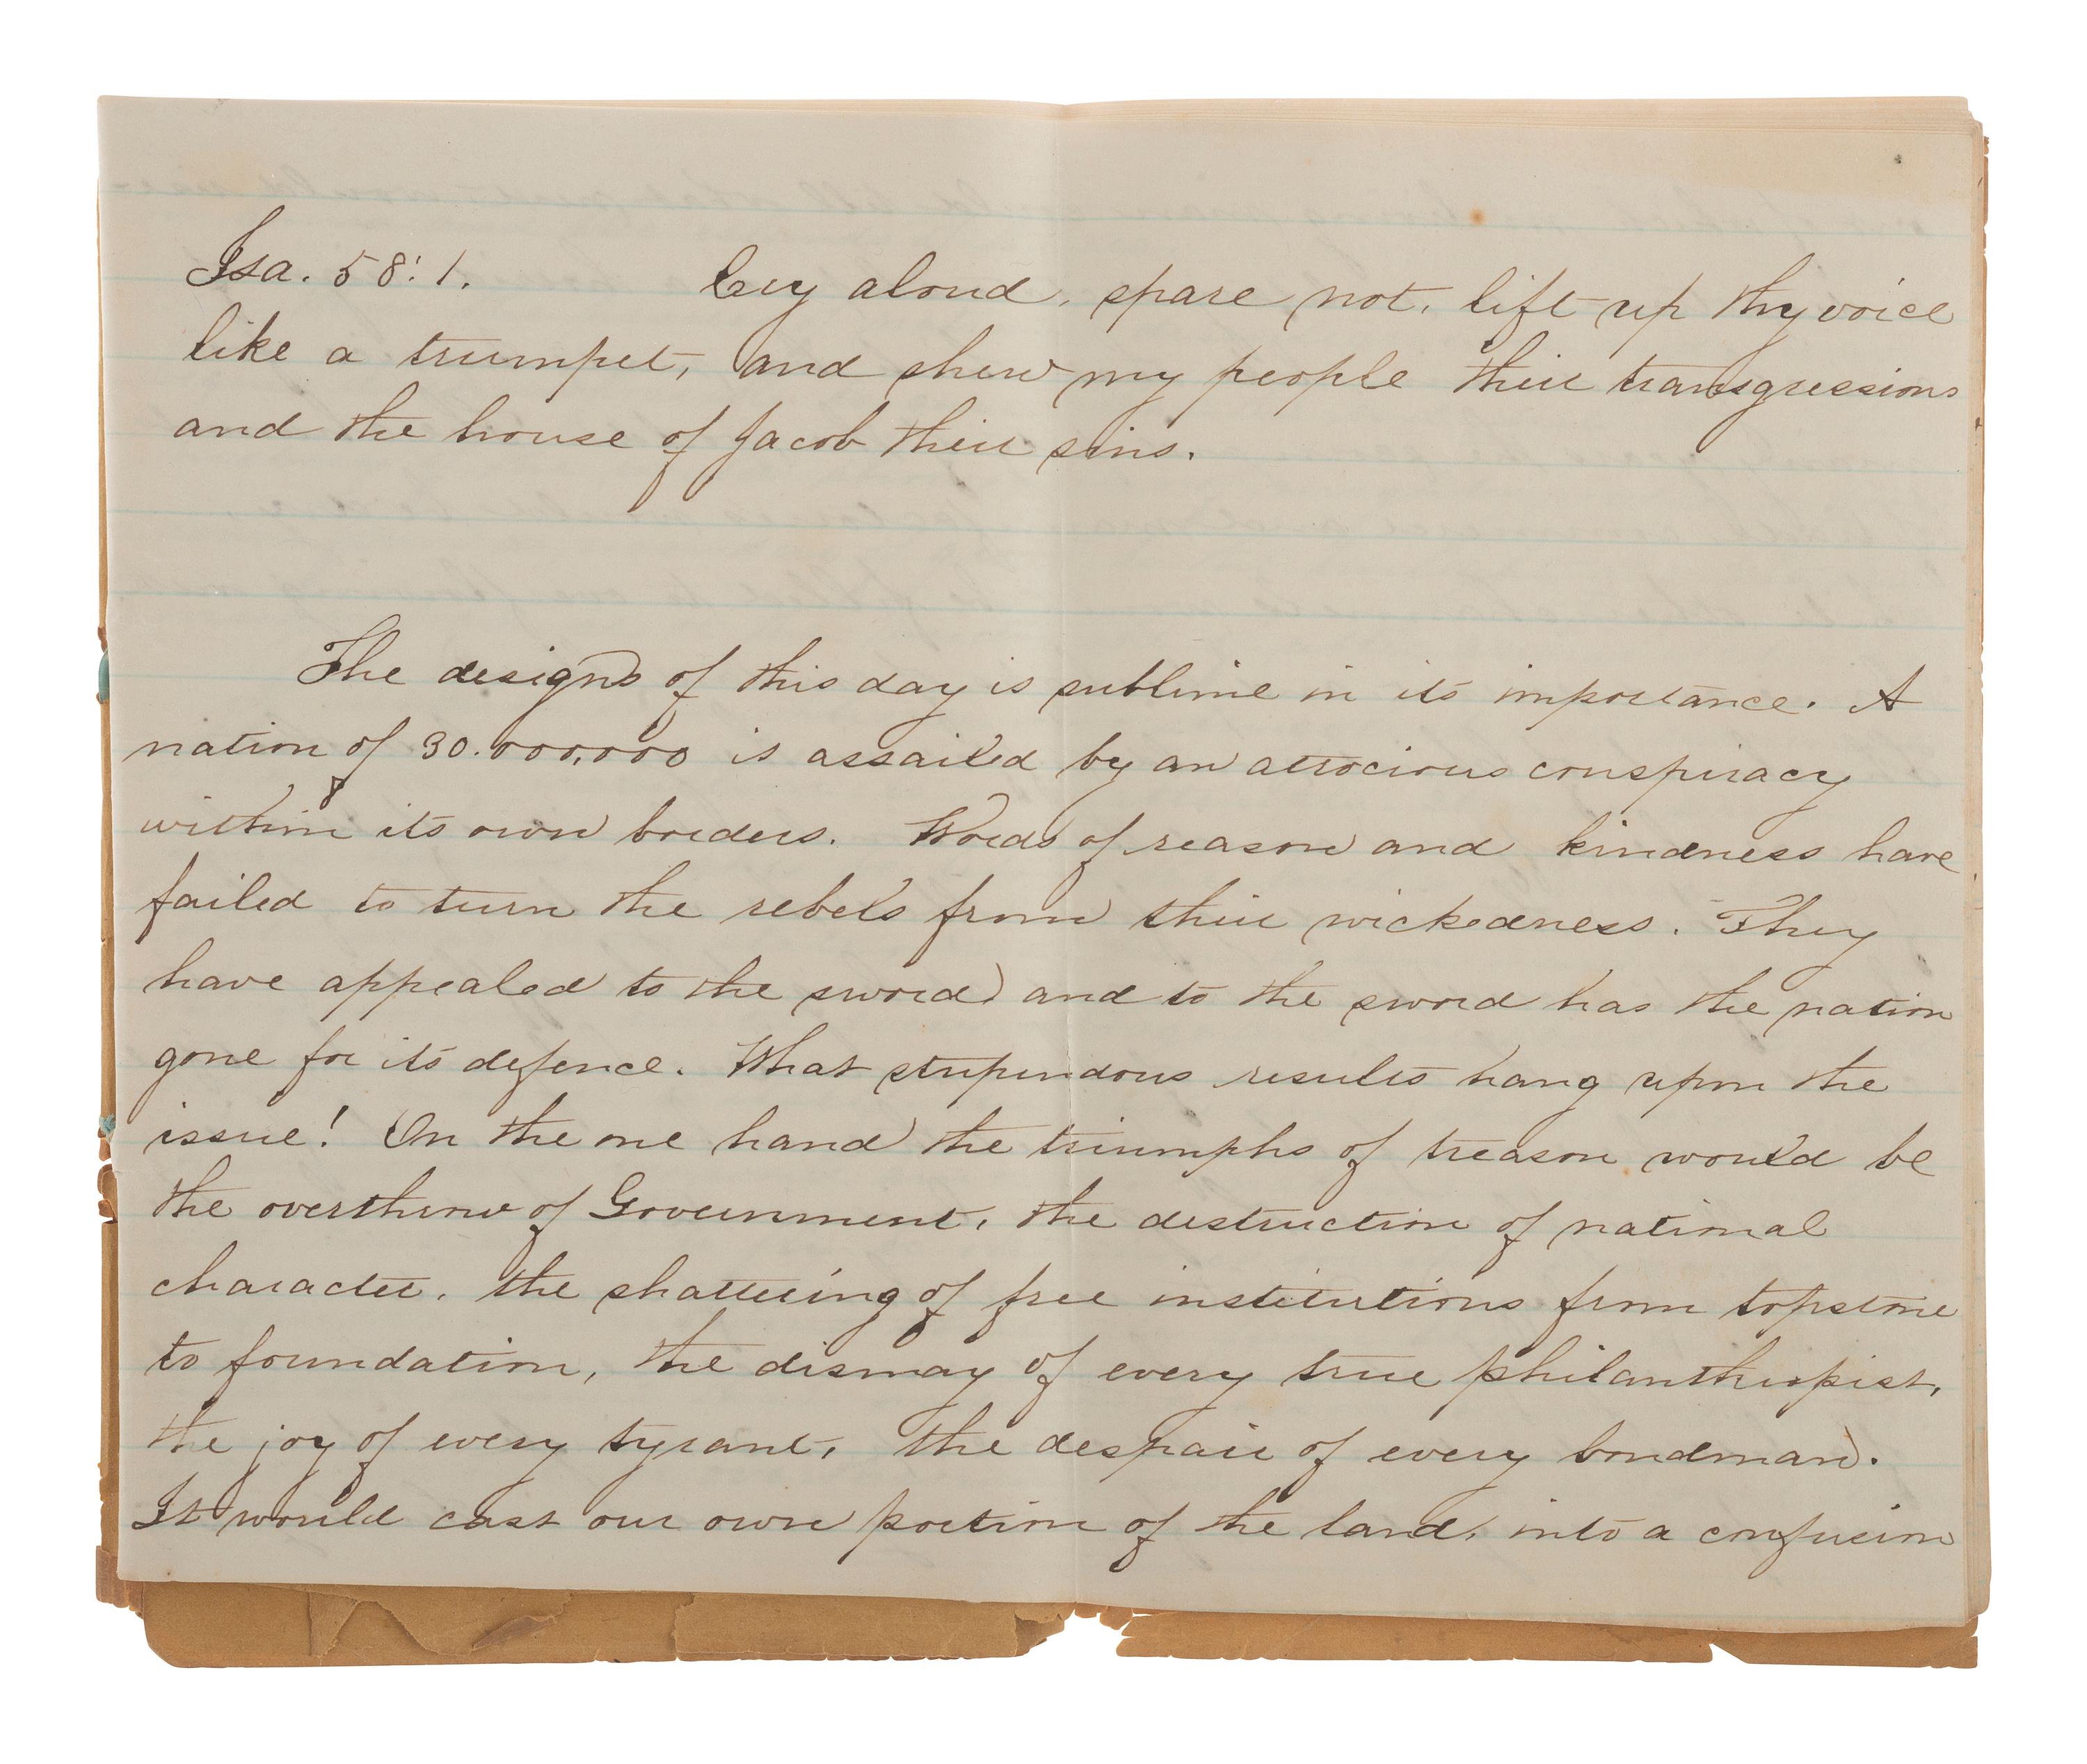 Isa. 58:1. Cry aloud, spare not, lift up thy voice
like a trumpet, and shew my people their transgressions
and the house of Jacob their sins.
The designs of this day is sublime in its importance. A
nation of 30.000,000 is assailed by an atrocious conspiracy
within its own borders. Words of reason and kindness have
failed to turn the rebels from their wickedness. They
have appealed to the sword and to the sword has the nation
gone for its defence. What stupendous results hang upon the
issue! On the one hand the triumphs of treason would be
the overthrow of Government, the destruction of national
character, the shattering of free institutions from topstone
to foundation, the dismay of every true philanthropist,
the joy of every tyrant, the despair of every bondman.
It would cast our own portion of the land, into a confusion